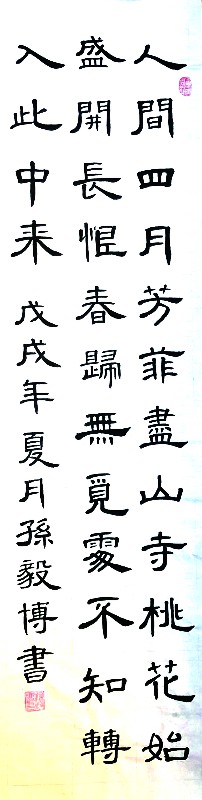 人間四月芳菲盡山寺桃花始
盛開長恨春歸無覓處不知轉
入此中来戊戌年夏月孫毅博書